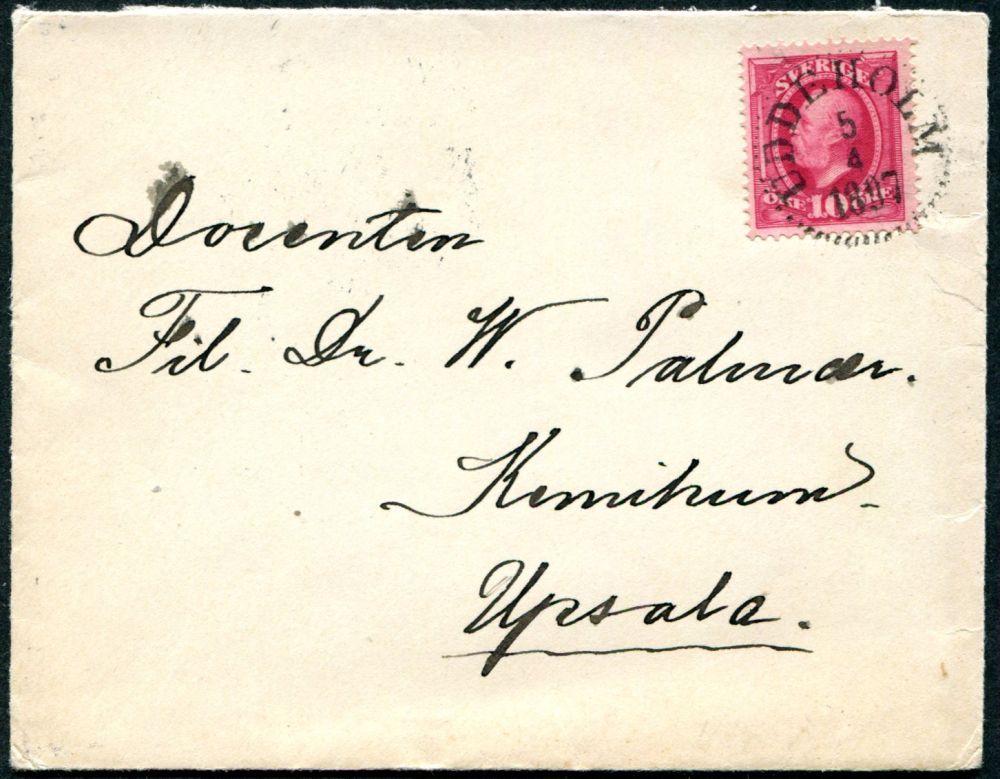 SVERIGE
UDDEHOLM
5
4
1897
ÖRE 10 ÖRE
Docenten
Fil. Dr. W. Palmær.
Kemikum.
Upsala.